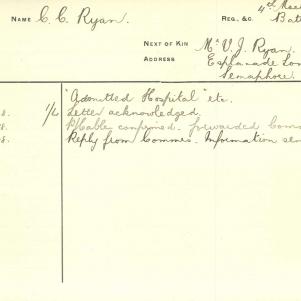 NAME C. C. Ryan.
REG., &C. 4th
NEXT OF KIN Mr V. J. Ryan.
ADDRESS Esplanade
Semaphore.
"Admitted Hospital" etc.
8. 1/6 Letter acknowledged.
8. P/Cable confirmed. forwarded
8. Reply from Commes. Information